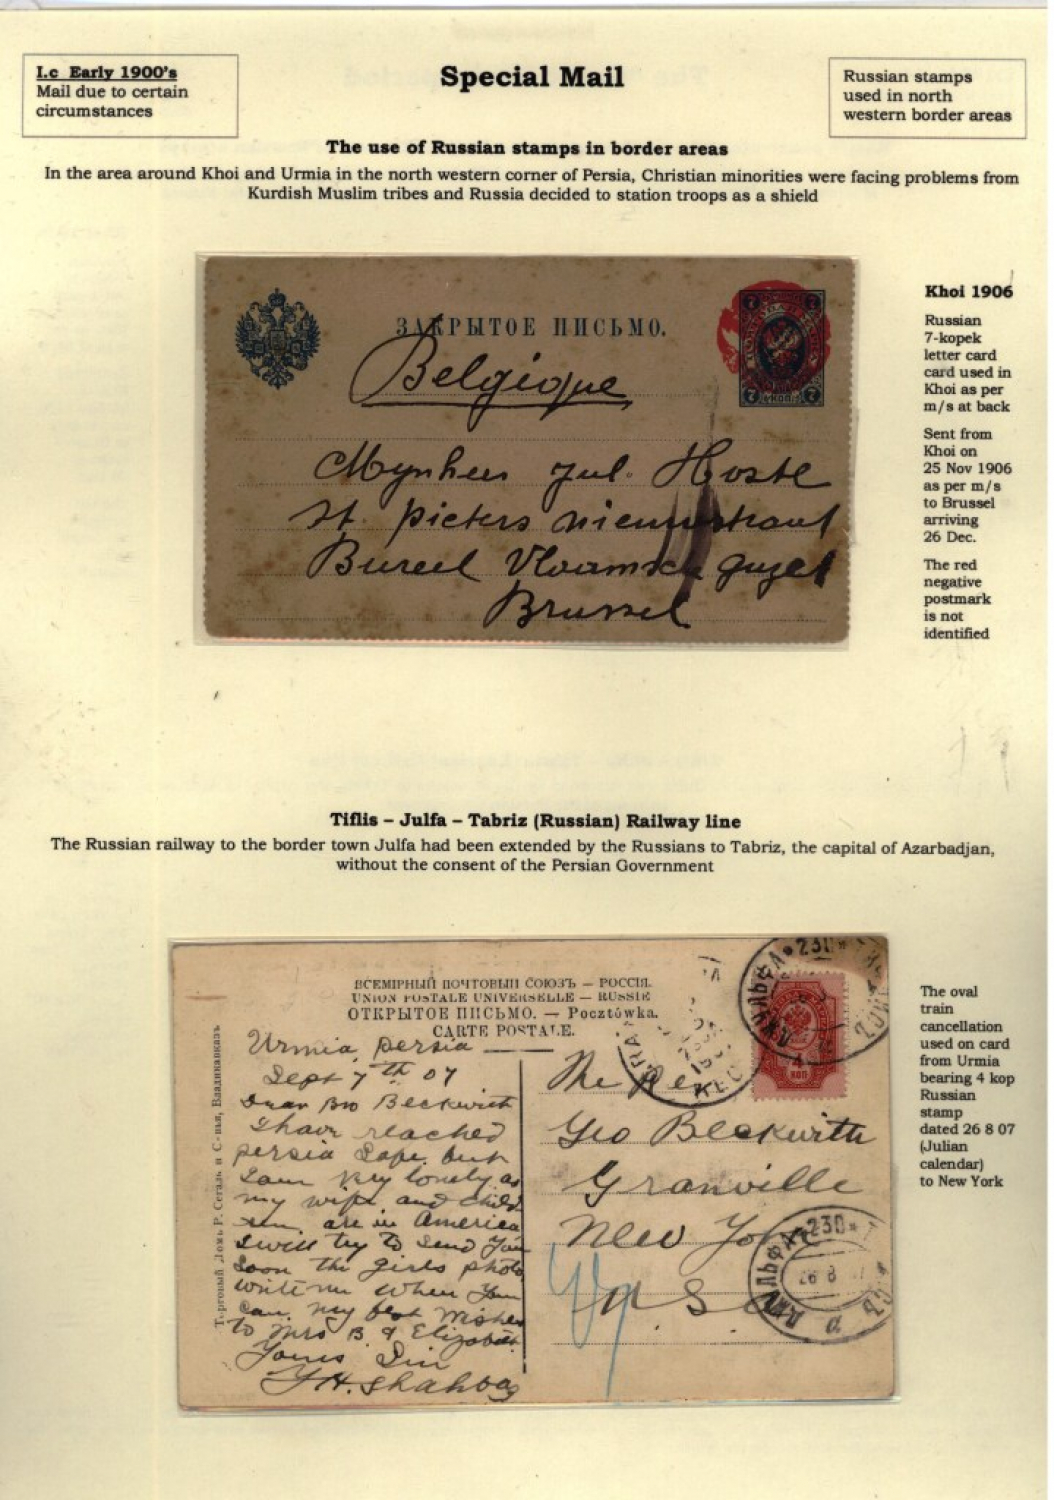 I.c Early 1900's
Mail due to certain
circumstances
Special Mail
Russian stamps
used in north
western border areas
The use of Russian stamps in border areas
In the area around Khoi and Urmia in the north western corner of Persia, Christian minorities were facing problems from
Kurdish Muslim tribes and Russia decided to station troops as a shield
ЗАКРЫТОЕ ПИСЬМО.
7 7
7 7
Belgique
Mynheer Jul. Hoste
St. Pieters nieuwstraat
Bureel Vlaamsche gazet
Brussel
Khoi 1906
Russian
7-kopek
letter card
card used in
Khoi as per
m/s at back
Sent from
Khoi on
25 Nov 1906
as per m/s
to Brussel
arriving
26 Dec.
The red
negative
postmark
is not
identified
Tiflis – Julfa – Tabriz (Russian) Railway line
The Russian railway to the border town Julfa had been extended by the Russians to Tabriz, the capital of Azarbadjan,
without the consent of the Persian Government
ВСЕМІРНЫЙ ПОЧТОВЫЙ СОЮЗЪ — РОССІЯ.
UNION POSTALE UNIVERSELLE — RUSSIE
ОТКРЫТОЕ ПИСЬМО. — Pocztówka.
CARTE POSTALE.
Торговый Домъ Р. Сегаль и С-вья, Владикавказъ
Urmia, persia
Sept 7th 07
Dear Bro Beckwith
I have reached
persia safe but
I am very lonely as
my wife and child
ren are in America
I will try to send you
soon the girls photo
write me when you
can. my best wishes
to Mrs B. & Elizabeth
Yours Sin
The Rev
Geo Beckwith
Granville
New York
U.S.
ДЖУЛЬФА * 230 *
4
КОП
ДЖУЛЬФА * 230 *
26 8
The oval
train
cancellation
used on card
from Urmia
bearing 4 kop
Russian
stamp
dated 26 8 07
(Julian
calendar)
to New York